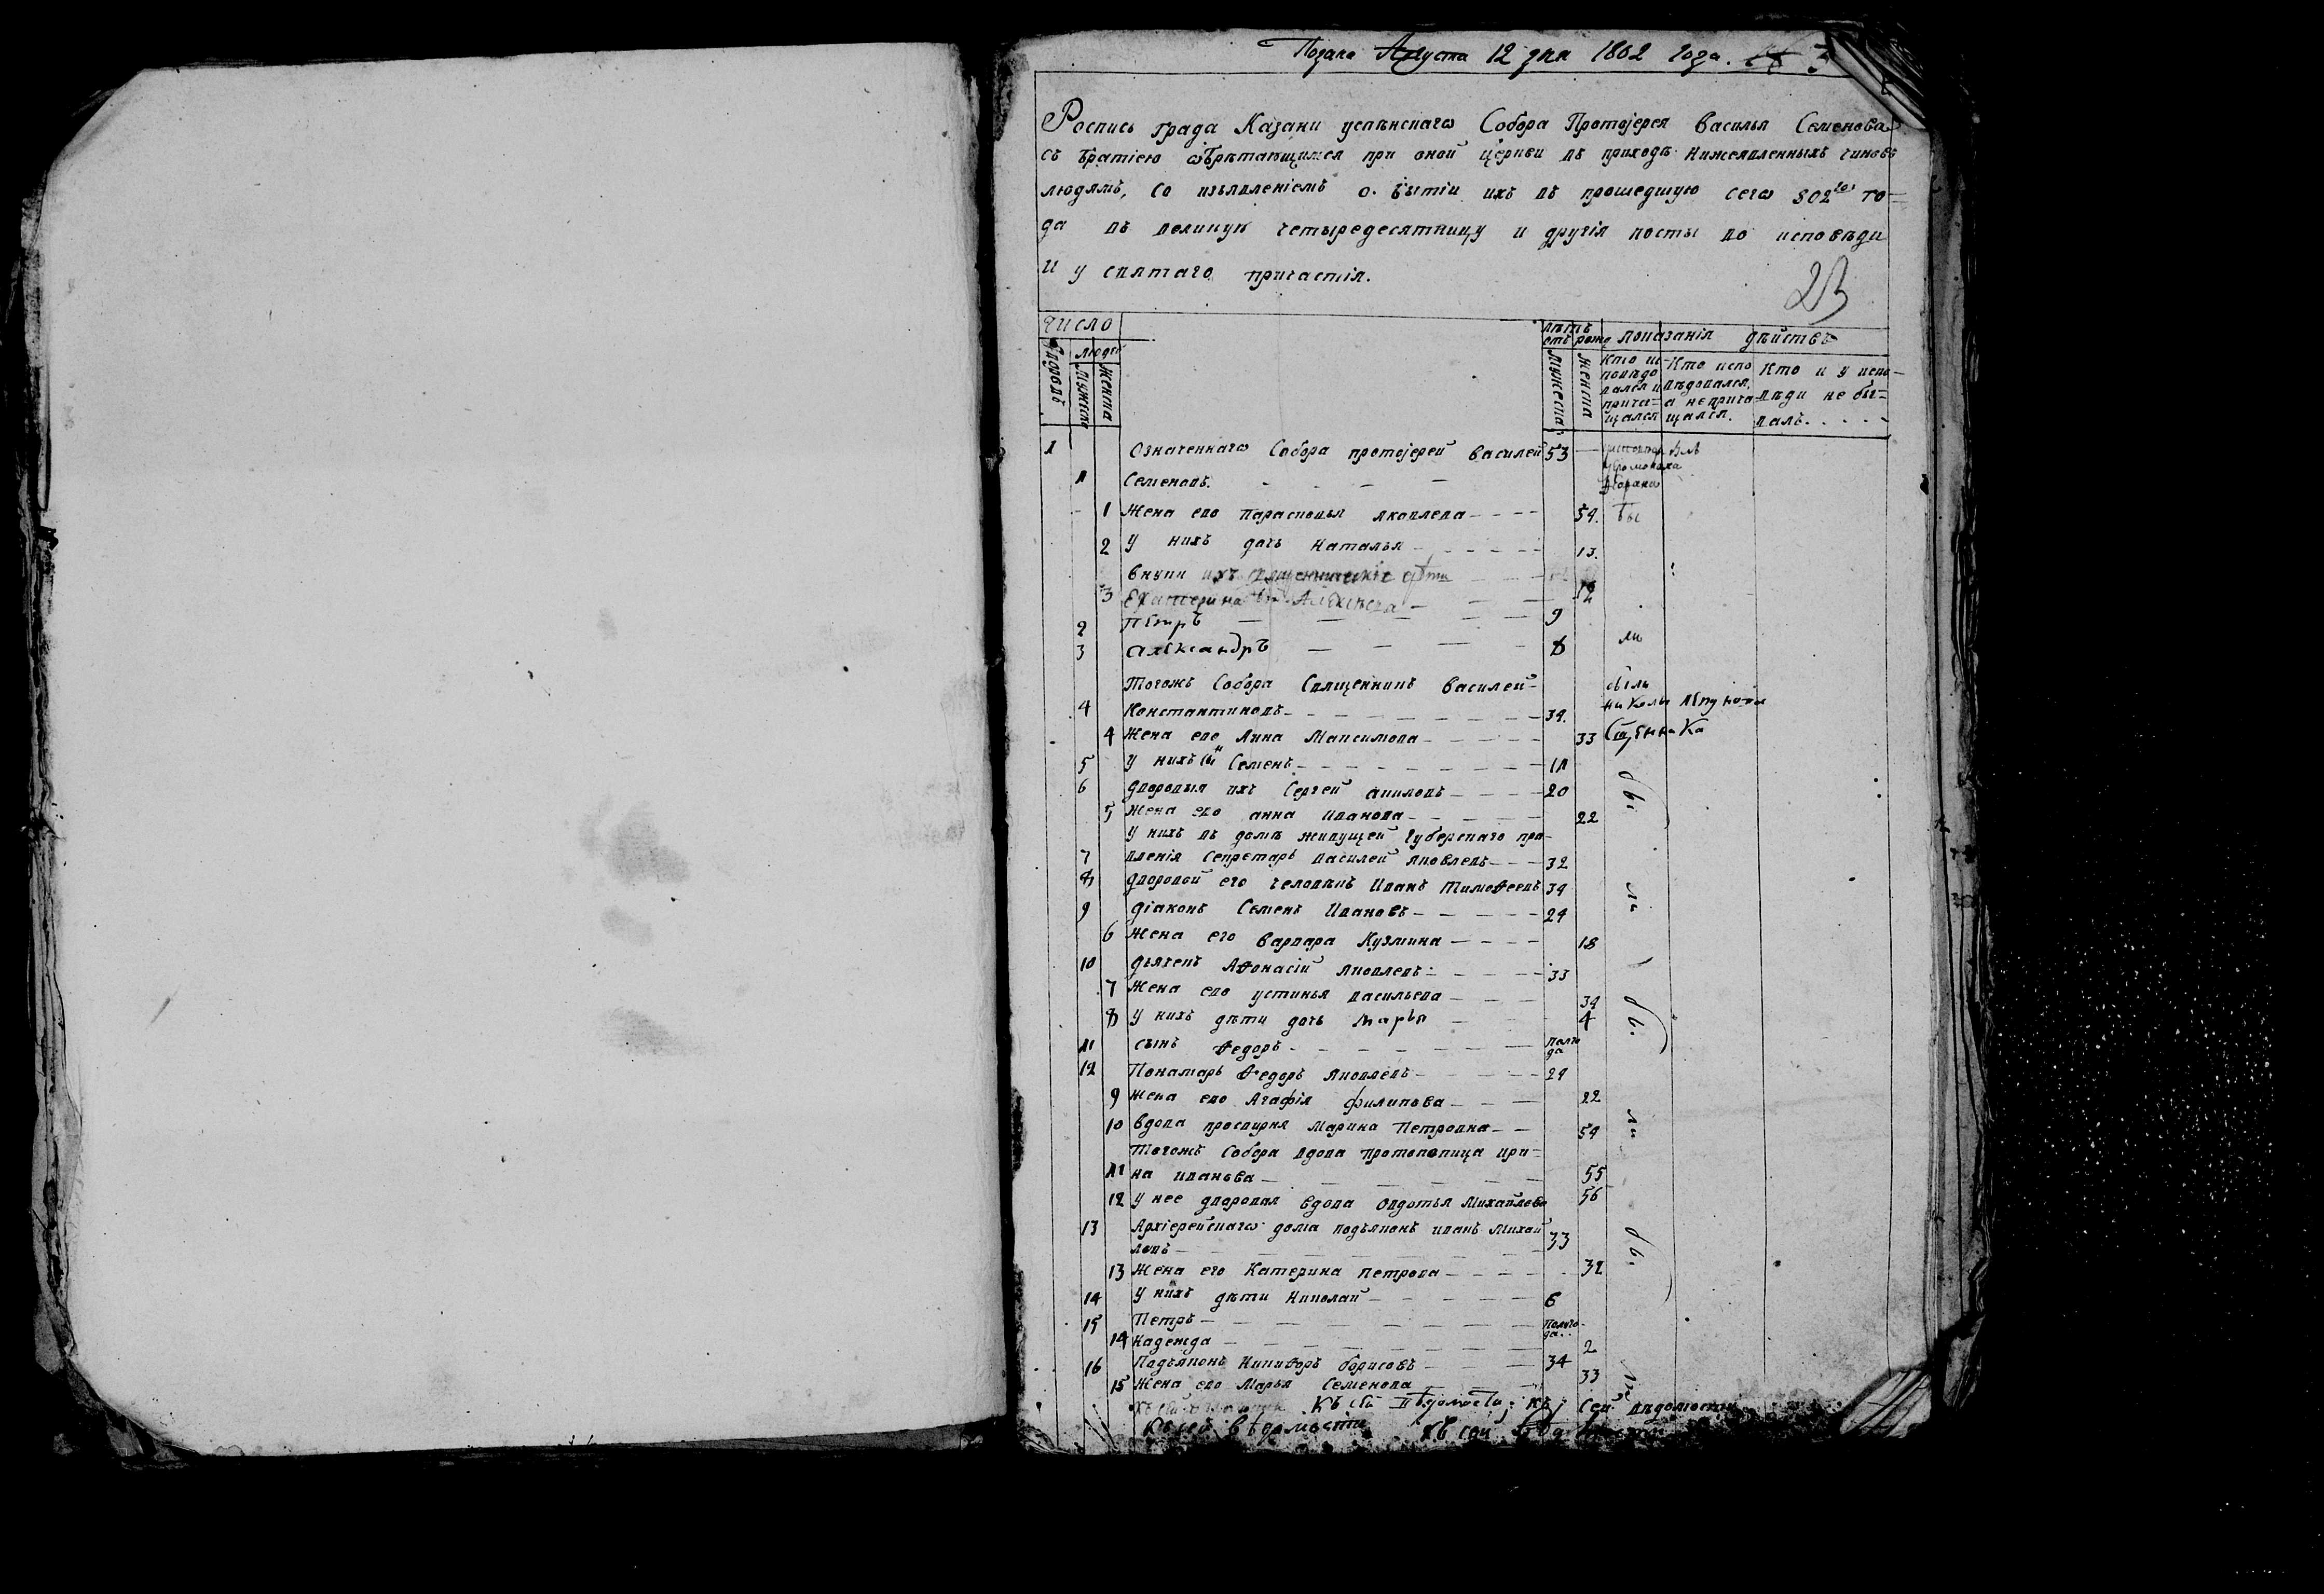 Подана Августа 12 дня 1802 года.
Роспись града Казани успѣнскагѡ Собора Протоіерея Василья Семенова
съ братіею ѡбрѣтающимся при оной церкви въ приходѣ нижеявленныхъ чиновъ
людямъ, со изъявленіемъ о бытіи ихъ въ прошедшую сегѡ 802го го=
да въ великую четыредесятницу и другія посты во исповѣди
и у святаго причастія.
23
Число
лѣтъ отъ рожд
показанія дѣйствъ
Дворовъ
людей
мужеска
женска
мужеска
женска
кто исповѣдовался и причащался
Кто исповѣдовался, а непричащался.
Кто и у исповѣди не бывалъ.
1 Означеннагѡ Собора протоіерей Василей 53
1 Семеновъ.
1 Жена ево Парасковья Яковлева 54. бы
2 У нихъ дочь Наталья 13.
внуки ихъ священническіе дѣти
3 Екатерина Алексѣева 12
2 Петръ 9
3 Александръ 8 ли
Тогожъ Собора Священникъ Василей
4 Константиновъ 34.
4 Жена ево Анна Максимова 33
5 У нихъ сынъ Семенъ 11
6 дворовыя ихъ Сергей 20
5 Жена ево анна Иванова 22 бы
У нихъ въ домѣ живущей Губерскаго пра=
7 вленія Секретарь Василей Яковлевъ 32
8 дворовой его человѣкъ Иванъ Тимоѳеевъ 34
9 діаконъ Семенъ Ивановъ 24 ли
6 Жена его Варвара Кузмина 18
10 дьячекъ Аѳонасій Яковлевъ 33
7 Жена ево устинья васильева 34
8 У нихъ дѣти дочь Марья 4 бы
11 сынъ Ѳедоръ полгода
12 Понамарь Ѳедоръ Яковлевъ 24
9 жена ево Агафія филипова 22
10 вдова просвирня Марина Петровна 54 ли
Тогожъ Собора вдова протопопица Ири=
11 на иванова 55
12 У нее дворовая вдова Овдотья Михайлева 56
13 Архіерейскагѡ дома подъяконъ иванъ Михай
ловъ 33 бы
13 Жена его Катерина петрова 32
14 У нихъ дѣти Николай 6
15 Петръ полгода
14 Надежда 2
16 Подъяконъ Никиѳоръ борисовъ 34
15 Жена ево Марья Семенова 33 ли
Къ сей вѣдомости